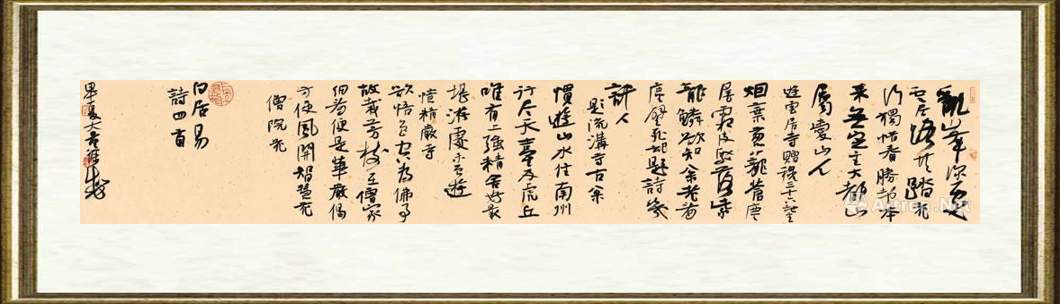 亂峯深處
雲居路共踏花
行獨惜春勝地本
來無定主大都山
屬愛山人
遊雲居寺贈穆三十六地主
烟葉蔥蘢蒼麈
尾霜皮剝落紫
龍鱗欲知松老看
塵壁死却題詩幾
許人
題流溝寺古松
慣遊山水住南州
行尽天臺及虎丘
唯有上強精舍好最
堪游處未曾遊
憶精嚴寺
欲悟色空為佛事
故栽芳樹在僧家
細看便是華嚴偈
方便風開智慧花
僧院花
白居易
詩四首